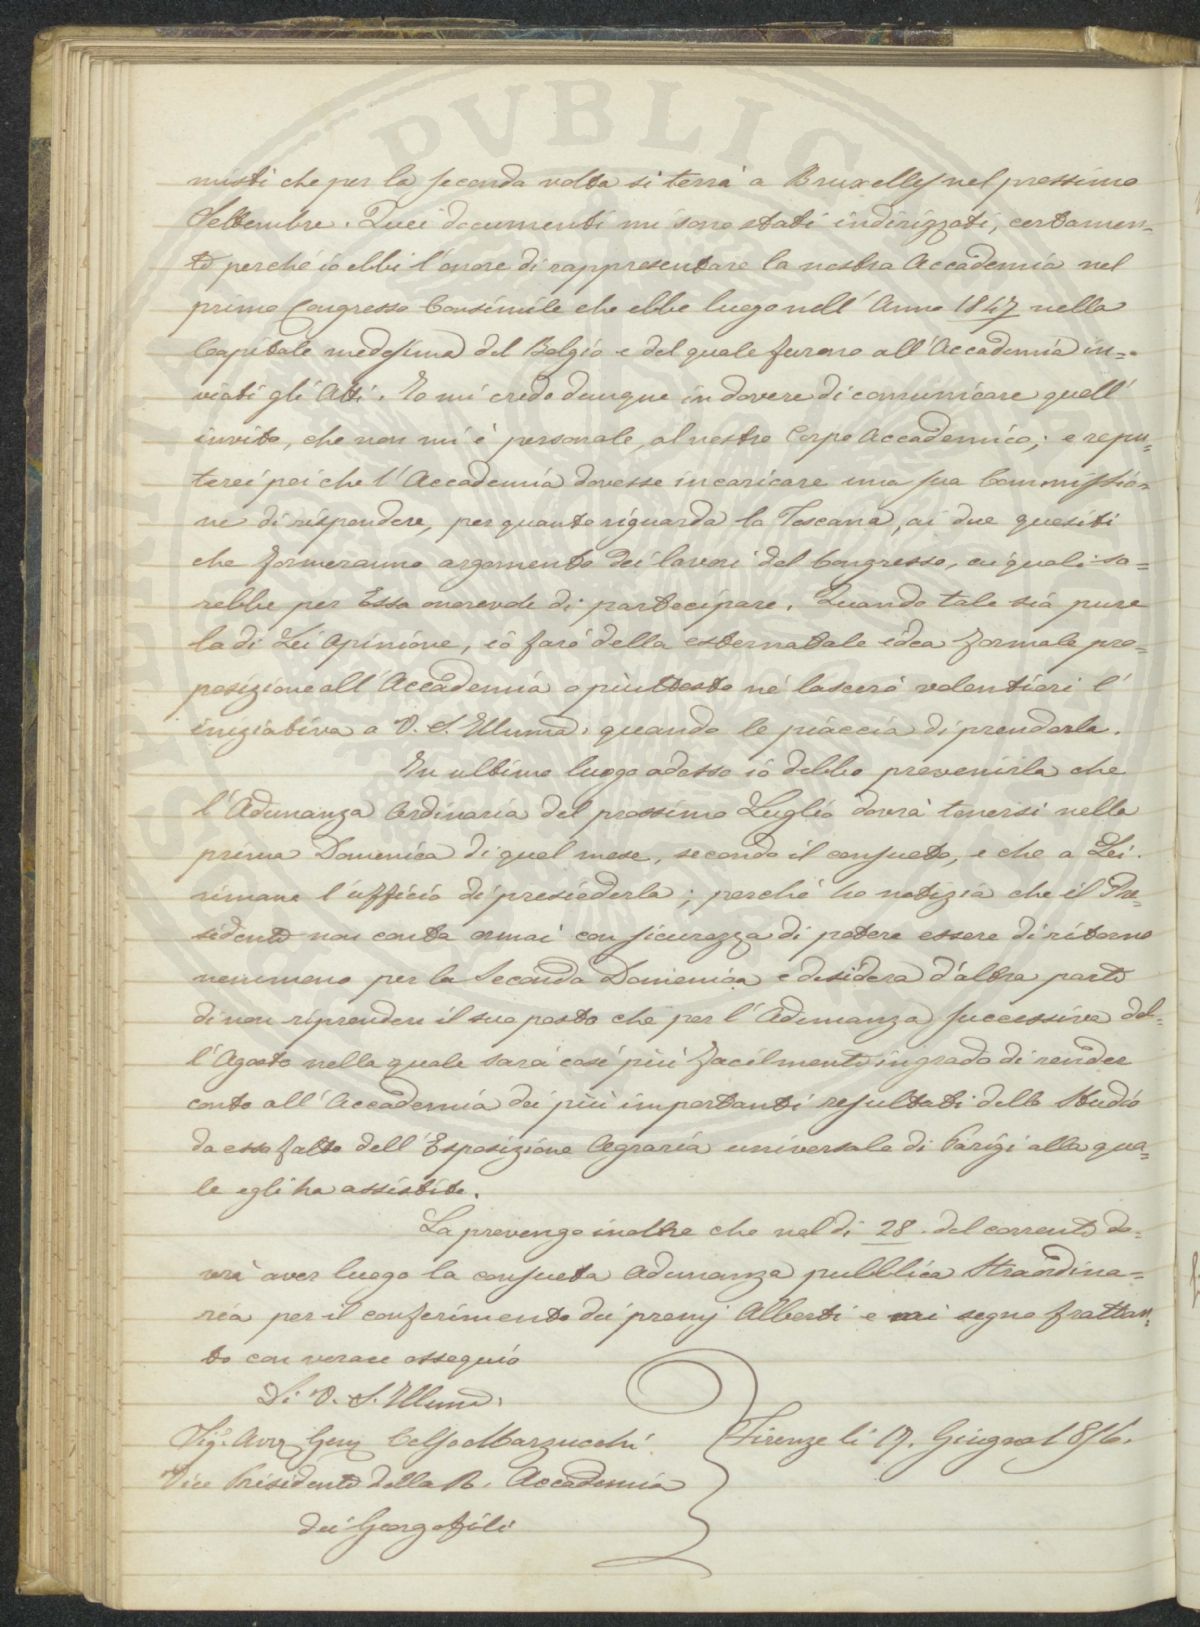 PVBLIC
misti che per la seconda volta si terrà a Bruxelles nel prossimo
Settembre. Quei documenti mi sono stati indirizzati, certamen=
te perchè io ebbi l'onore di rappresentare la nostra Accademia nel
primo Congresso Consimile che ebbe luogo nell'Anno 1847 nella
Capitale medesima del Belgio e del quale furono all'Accademia in=
viati gli Atti. Io mi credo dunque in dovere di comunicare quell'
invito, che non mi è personale, al nostro Corpo Accademico; e repu=
terei poi che l'Accademia dovesse incaricare una sua Commissio=
ne di rispondere, per quanto riguarda la Toscana, ai due quesiti
che formeranno argomento dei lavori del Congresso, ai quali sa=
rebbe per Essa onorevole di partecipare. Quando tale sia pure
la di Lei Opinione, io farò della esternatale idea formale pro=
posizione all'Accademia o piuttosto ne lascerò volentieri l'
iniziativa a V. S. Illuma. quando le piaccia di prenderla.
In ultimo luogo adesso io debbo prevenirla che
l'Adunanza Ordinaria del prossimo Luglio dovrà tenersi nella
prima Domenica di quel mese, secondo il consueto, e che a Lei
rimane l'ufficio di presiederla; perchè ho notizia che il Pre=
sidente non conta ormai con sicurezza di potere essere di ritorno
nemmeno per la Seconda Domenica e desidera d'altra parte
di non riprendere il suo posto che per l'Adunanza successiva del=
l'Agosto nella quale sarà così più facilmente in grado di render
conto all'Accademia dei più importanti resultati dello Studio
da esso fatto dell'Esposizione Agraria universale di Parigi alla qua=
le egli ha assistito.
La prevengo inoltre che nel dì 28. del corrente do=
vrà aver luogo la consueta Adunanza pubblica Straordina=
ria per il conferimento dei premj Alberti e mi segno frattan=
to con verace ossequio
Di V. S. Illuma.
Sig. Avv. Gen. Celso Marzucchi
Firenze li 17. Giugno 1856.
Vice Presidente della R. Accademia
dei Georgofili